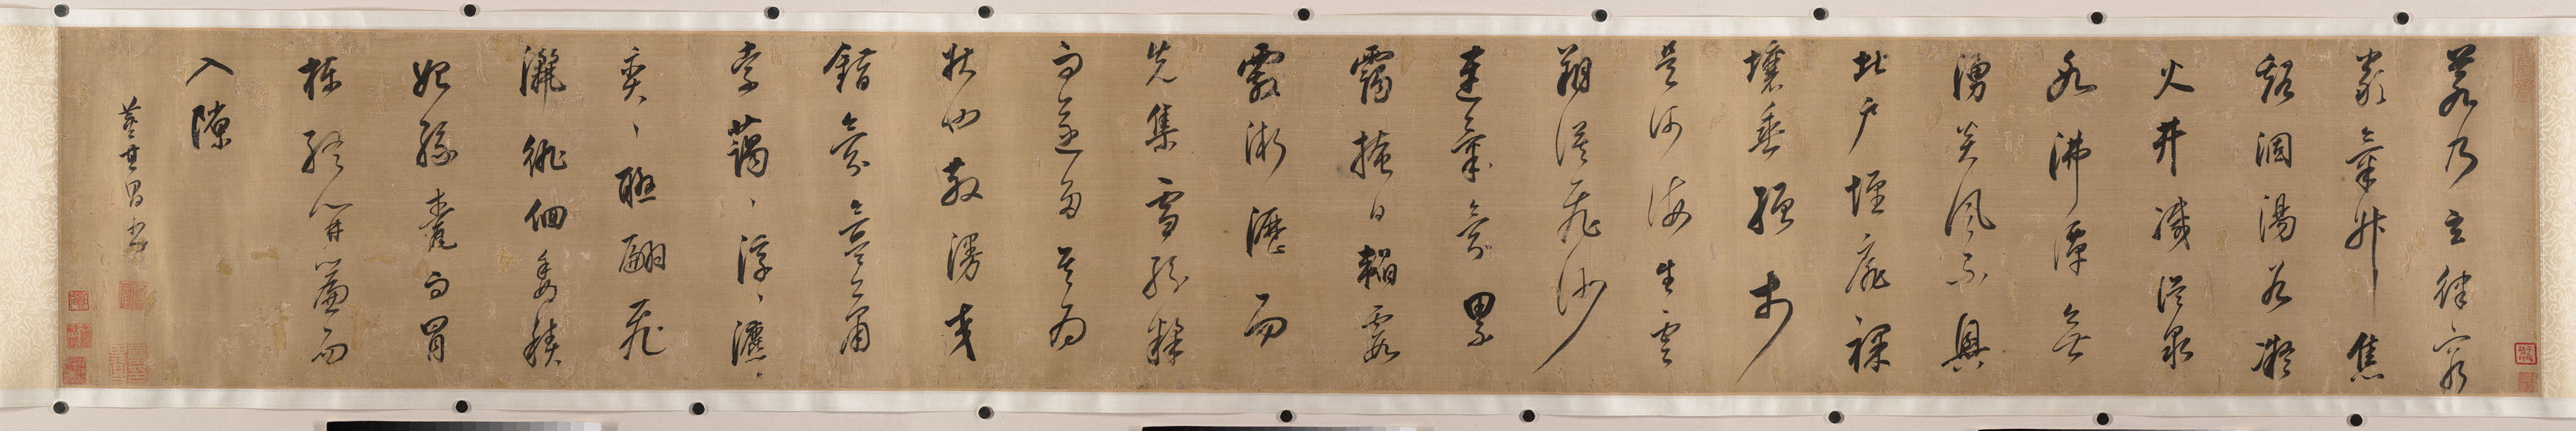 若乃玄律窮
嚴氣升焦
谿涸湯谷凝
火井滅溫泉
氷沸潭無
湧炎風不興
北戶墐扉裸
壤垂繒於
是河海生雲
朔漠飛沙
連氣氛累
靄掩日韜霞
霰淅瀝而
先集雪紛糅
而遂多其為
狀也散漫交
錯氛氳蕭
索藹〻浮〻瀌〻
奕〻聯翩飛
灑徘徊委積
始緣甍而冒
棟終開簾而
入隙
董其昌書